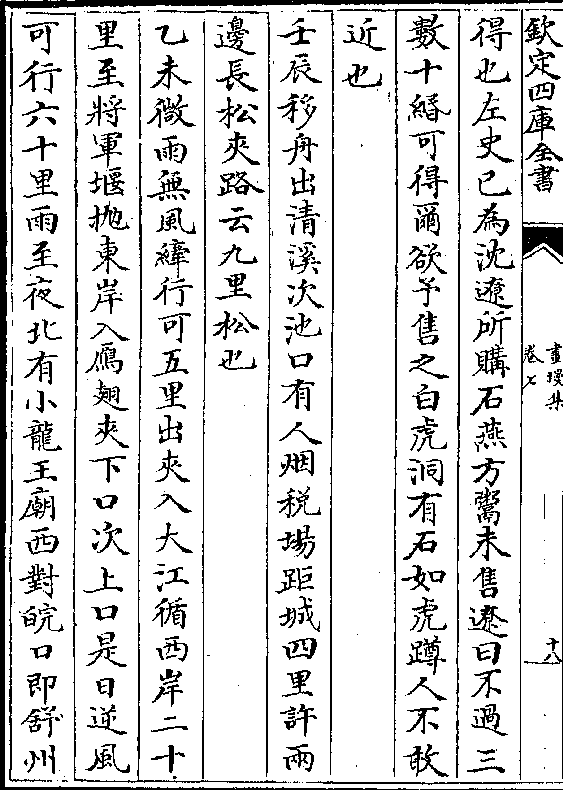 欽定四庫全書
畫墁集
卷七
十八
得也左史已為沈遼所購石燕方鬻未售遼曰不過三
數十緡可得爾欲予售之白虎洞有石如虎蹲人不敢
近也
壬辰移舟出清溪次池口有人烟税場距城四里許兩
邊長松夾路云九里松也
乙未微雨無風縴行可五里出夾入大江循西岸二十
里至將軍堰抛東岸入鴈翅夾下口次上口是日逆風
可行六十里雨至夜北有小龍王廟西對皖口即舒州